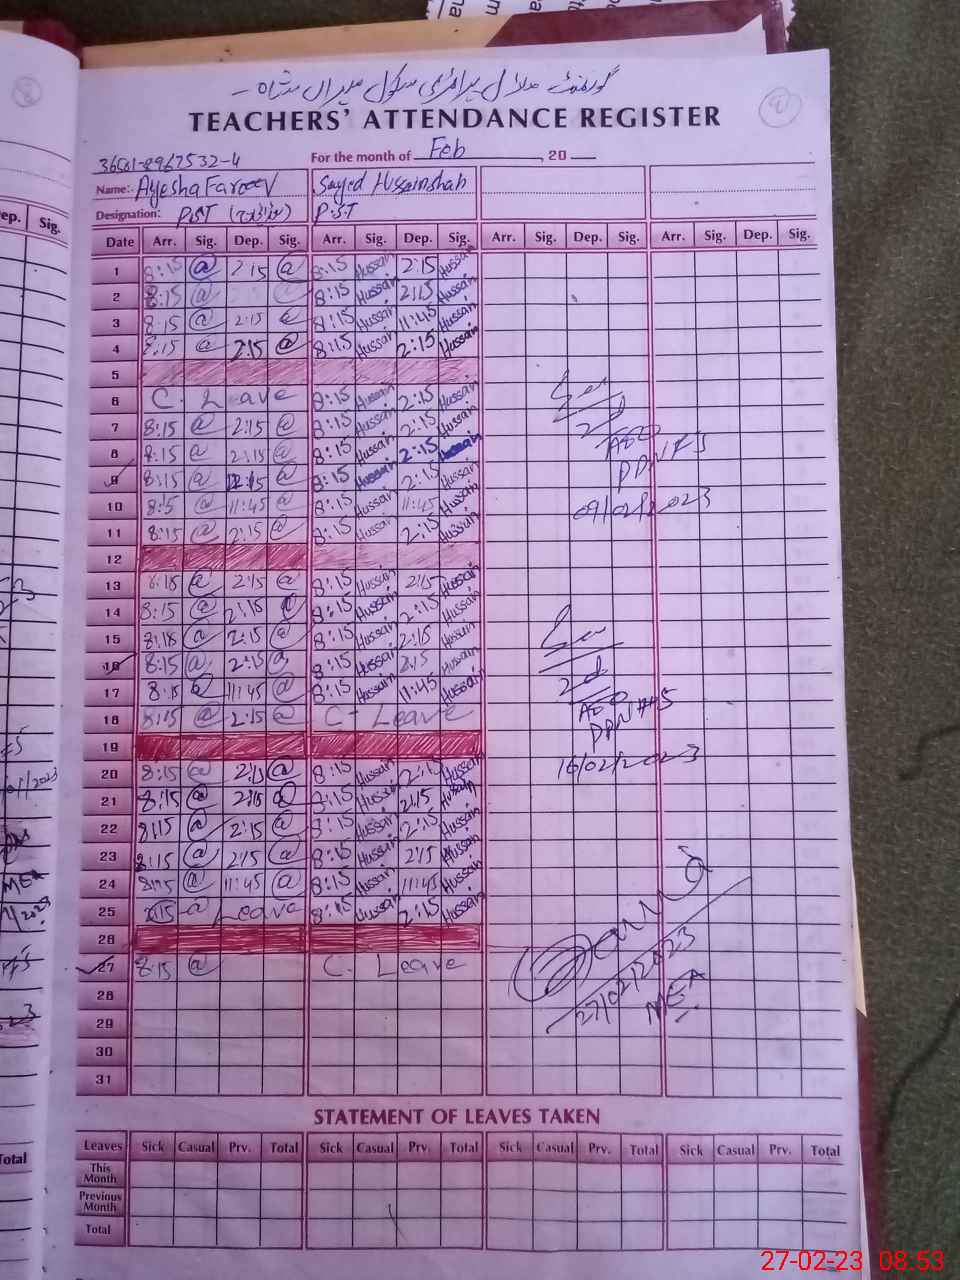 گورنمنٹ ماڈل پرائمری سکول میراں شاہ
TEACHERS' ATTENDANCE REGISTER
For the month of Feb , 20
Name: Ayesha Farooq Sayed Hussainshah
Designation: P.S.T P.S.T
Date Arr. Sig. Dep. Sig. Arr. Sig. Dep. Sig. Arr. Sig. Dep. Sig. Arr. Sig. Dep. Sig.
1 8:15 @ 2:15 @ 8:15 Hussain 2:15 Hussain
2 8:15 @ 8:15 Hussain 2:15 Hussain
3 8:15 @ 2:15 @ 8:15 Hussain 11:45 Hussain
4 8:15 @ 2:15 @ 8:15 Hussain 2:15 Hussain
5
6 C. Leave 8:15 Hussain 2:15 Hussain
7 8:15 @ 2:15 @ 8:15 Hussain 2:15 Hussain
8 8:15 @ 2:15 @ 8:15 Hussain 2:15 Hussain
9 8:15 @ 2:15 @ 8:15 Hussain 2:15 Hussain
10 8:15 @ 11:45 @ 8:15 Hussain 11:45 Hussain
09/02/2023
11 8:15 @ 2:15 @ 8:15 Hussain 2:15 Hussain
12
13 8:15 @ 2:15 @ 8:15 Hussain 2:15 Hussain
14 8:15 @ 2:15 @ 8:15 Hussain 2:15 Hussain
15 8:15 @ 2:15 @ 8:15 Hussain 2:15 Hussain
16 8:15 @ 2:15 @ 8:15 Hussain 2:15 Hussain
17 8:15 @ 11:45 @ 8:15 Hussain 11:45 Hussain
AEO
18 8:15 @ 2:15 @ C- Leave
19
16/02/2023
20 8:15 @ 2:15 @ 8:15 Hussain 2:15 Hussain
21 8:15 @ 2:15 @ 8:15 Hussain 2:15 Hussain
22 8:15 @ 2:15 @ 8:15 Hussain 2:15 Hussain
23 8:15 @ 2:15 @ 8:15 Hussain 2:15 Hussain
24 8:15 @ 11:45 @ 8:15 Hussain 11:45 Hussain
25 8:15 @ Leave 8:15 Hussain 2:15 Hussain
26
27 8:15 @ C- Leave
27/02/2023
MEA
28
29
30
31
STATEMENT OF LEAVES TAKEN
Leaves Sick Casual Prv. Total Sick Casual Prv. Total Sick Casual Prv. Total Sick Casual Prv. Total
This Month
Previous Month
Total
27-02-23 08:53